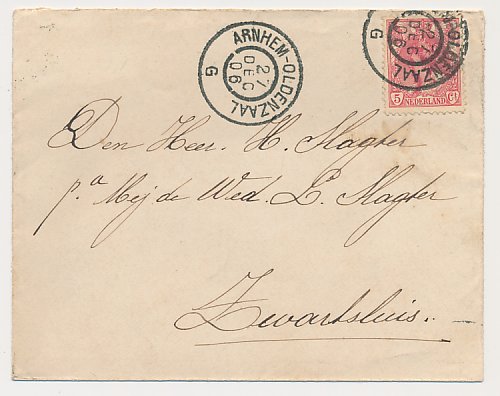 ARNHEM-OLDENZAAL
27
DEC
06
G
OLDENZAAL
27
DEC
06
5 NEDERLAND Ct
Den Heer. H. Slagter
p.a Mej de Wed. L. Slagter
Zwartsluis.